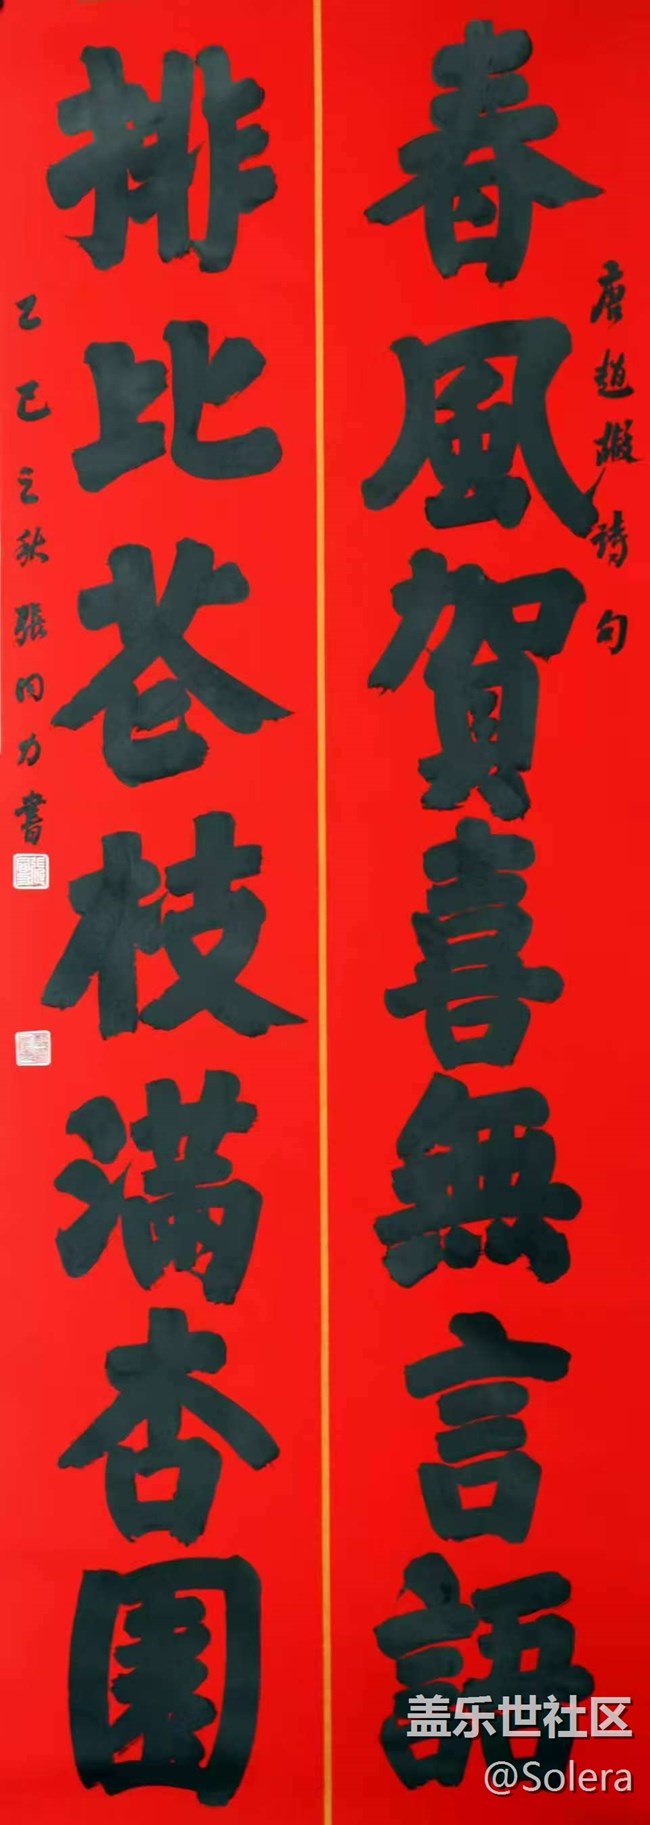 唐趙嘏詩句
春風賀喜無言語
排比花枝满杏園
乙巳立秋張同力書
盖乐世社区
@Solera